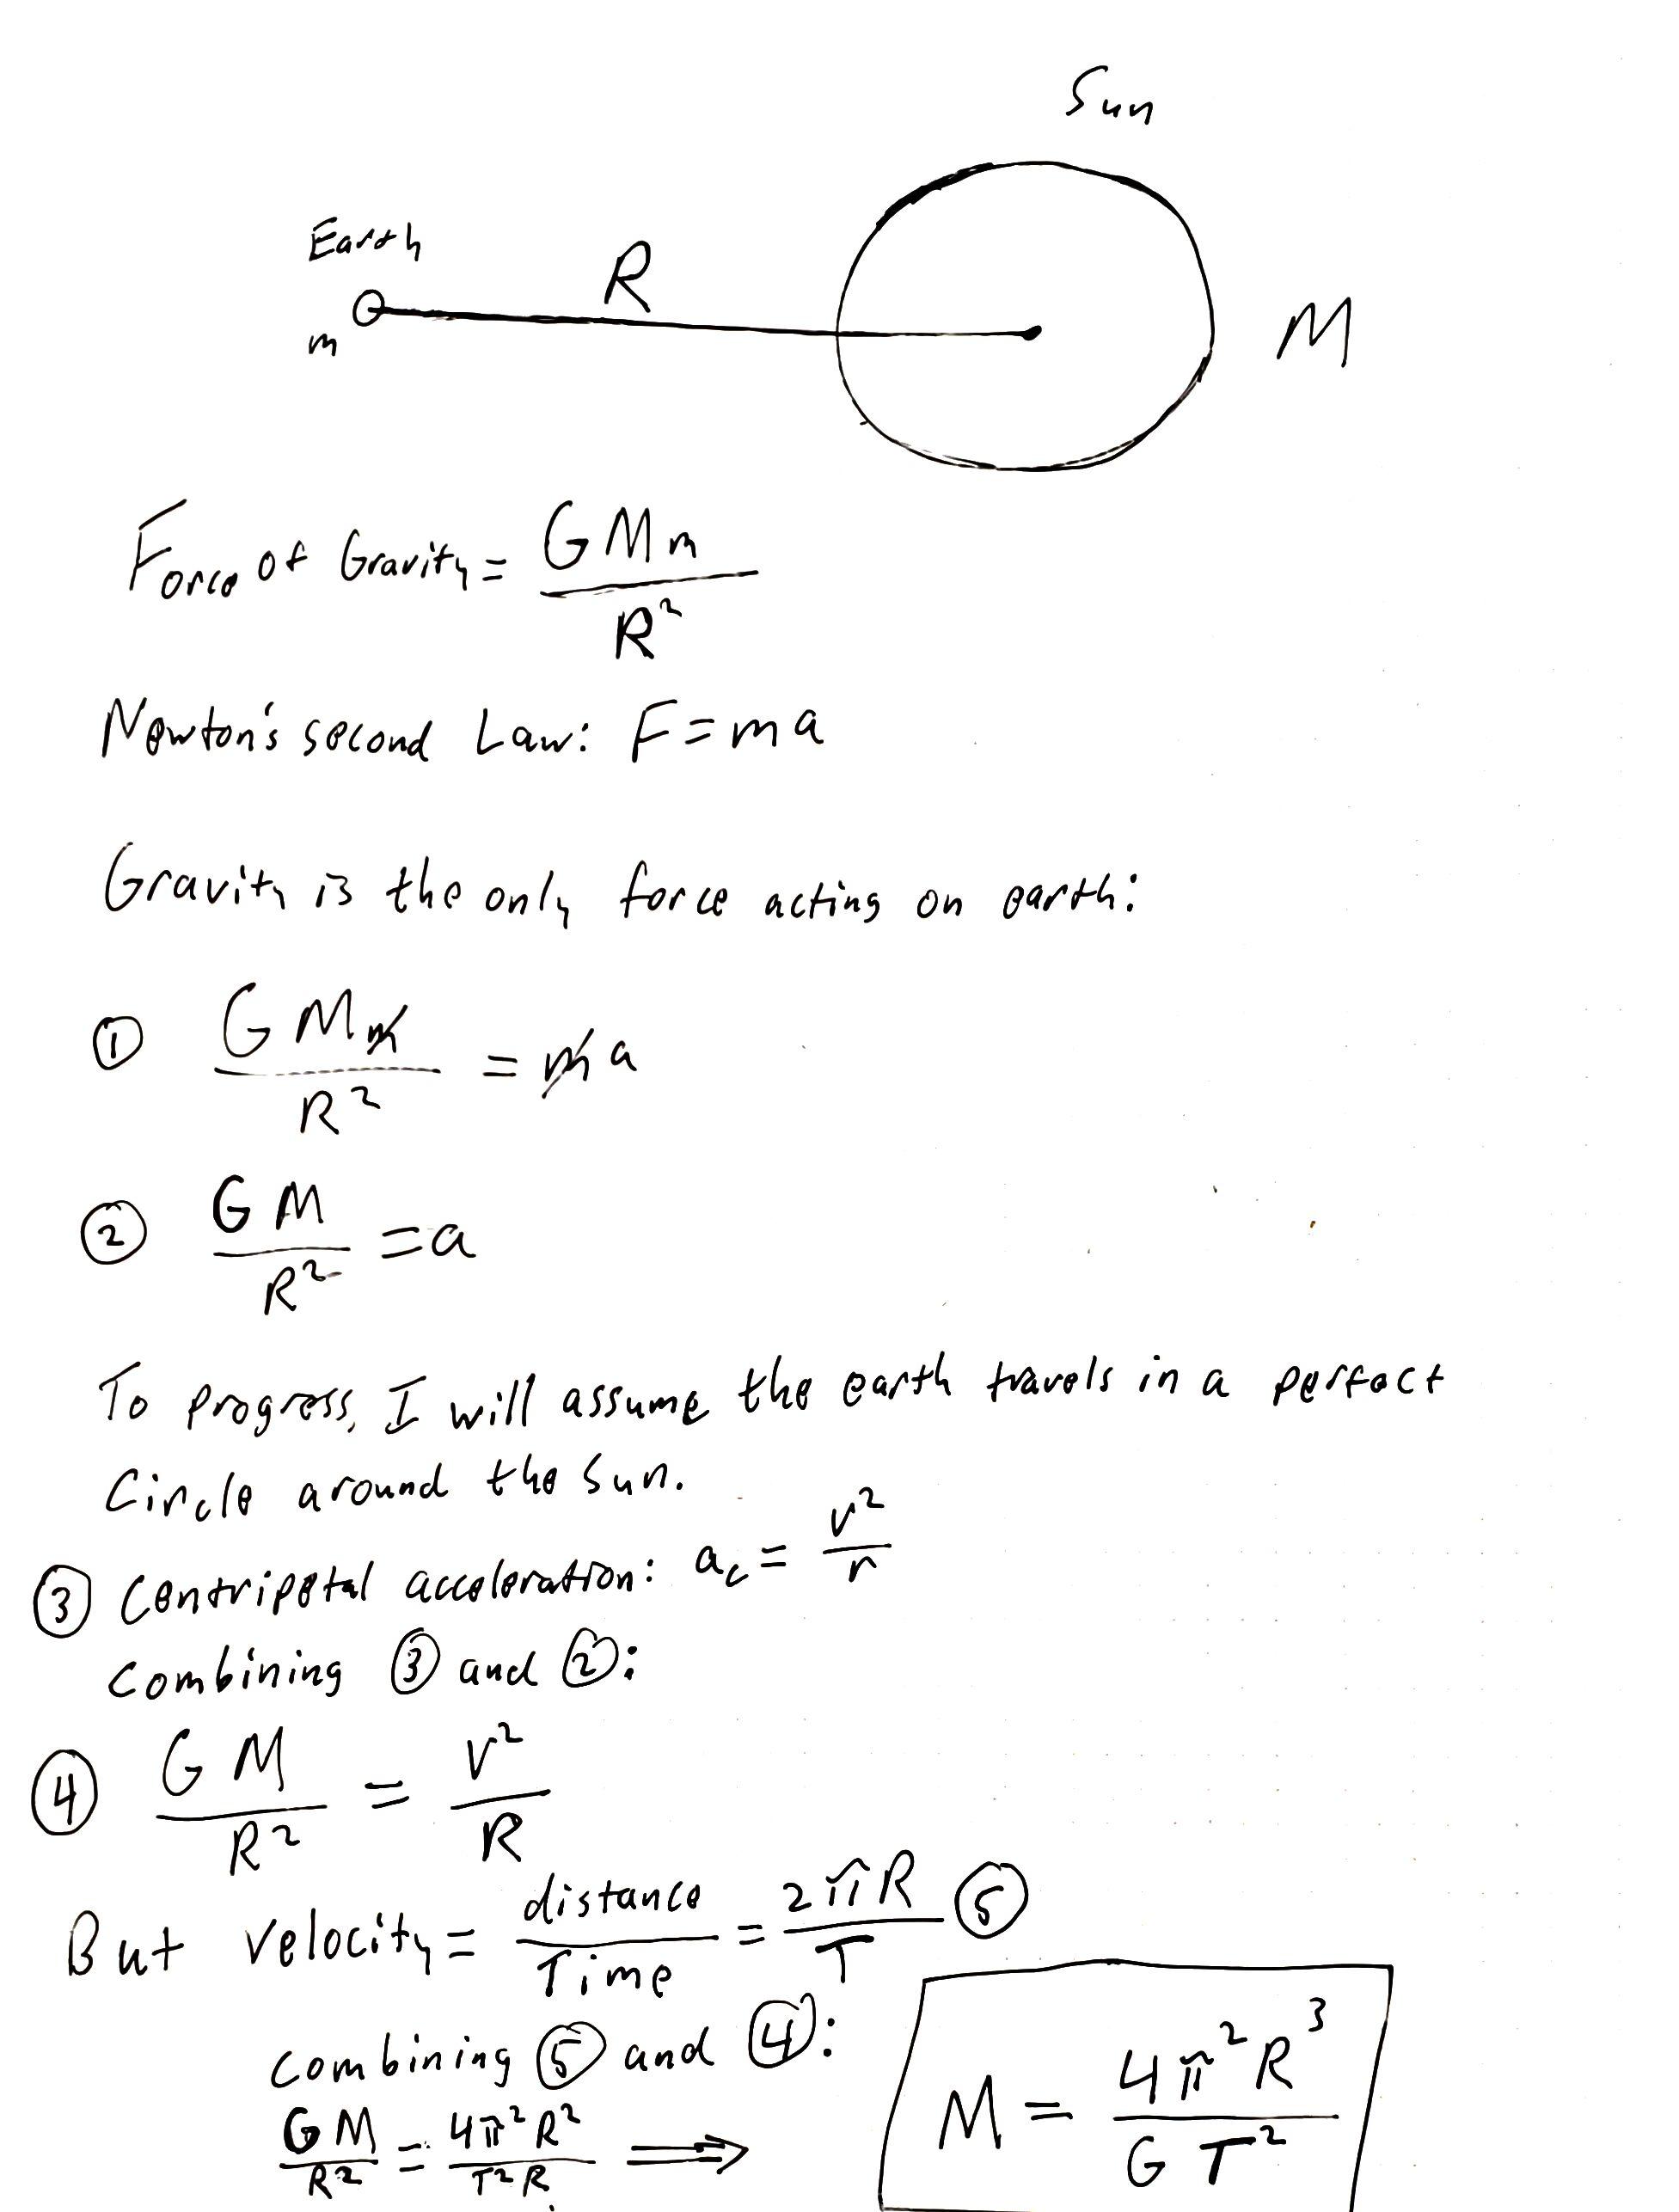 Sun
Earth
R
m
M
Force of Gravity = GMm / R²
Newton's second Law: F = ma
Gravity is the only force acting on earth:
① GMm / R² = ma
② GM / R² = a
To progress, I will assume the earth travels in a perfect
Circle around the Sun.
③ Centripetal acceleration: a_c = v² / r
Combining ③ and ②:
④ GM / R² = v² / R
But velocity = distance / Time = 2πR / T ⑤
Combining ⑤ and ④:
GM / R² = 4π²R² / T²R ⟹
M = 4π²R³ / GT²